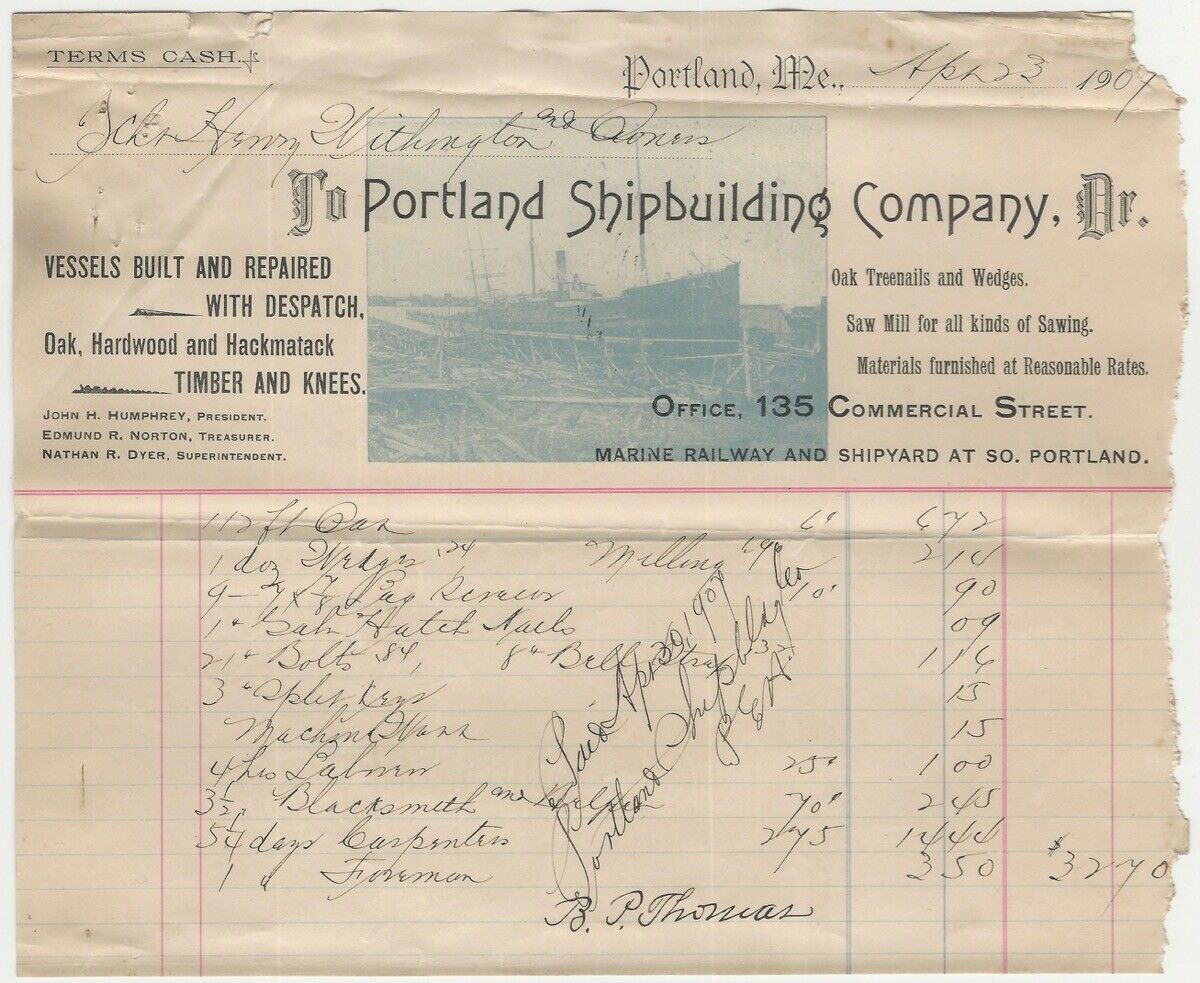 TERMS CASH.
Portland, Me., Apr 23 1907
Schr Henry Withington and Owners
To Portland Shipbuilding Company, Dr.
VESSELS BUILT AND REPAIRED
WITH DESPATCH,
Oak, Hardwood and Hackmatack
TIMBER AND KNEES.
JOHN H. HUMPHREY, PRESIDENT.
EDMUND R. NORTON, TREASURER.
NATHAN R. DYER, SUPERINTENDENT.
Oak Treenails and Wedges.
Saw Mill for all kinds of Sawing.
Materials furnished at Reasonable Rates.
OFFICE, 135 COMMERCIAL STREET.
MARINE RAILWAY AND SHIPYARD AT SO. PORTLAND.
112 ft Oak 6¢ 6 72
1 doz Wedges .24 Milling 1.90 2 14
9 - 7 x 7/8 Lag Screws 10¢ 90
1# Galv Hatch Nails 09
21# Bolts .84, 8# Bell .32 1 16
3# Split Keys 15
Machine Work 15
4 hrs Laborers 25¢ 1 00
3½ " Blacksmith and Helper 70¢ 2 45
5¼ days Carpenters 2 75 14 44
1 " Foreman 3 50 $32 70
Paid Apr 30, 1907
Portland Shipbldg Co
B. P. Thomas